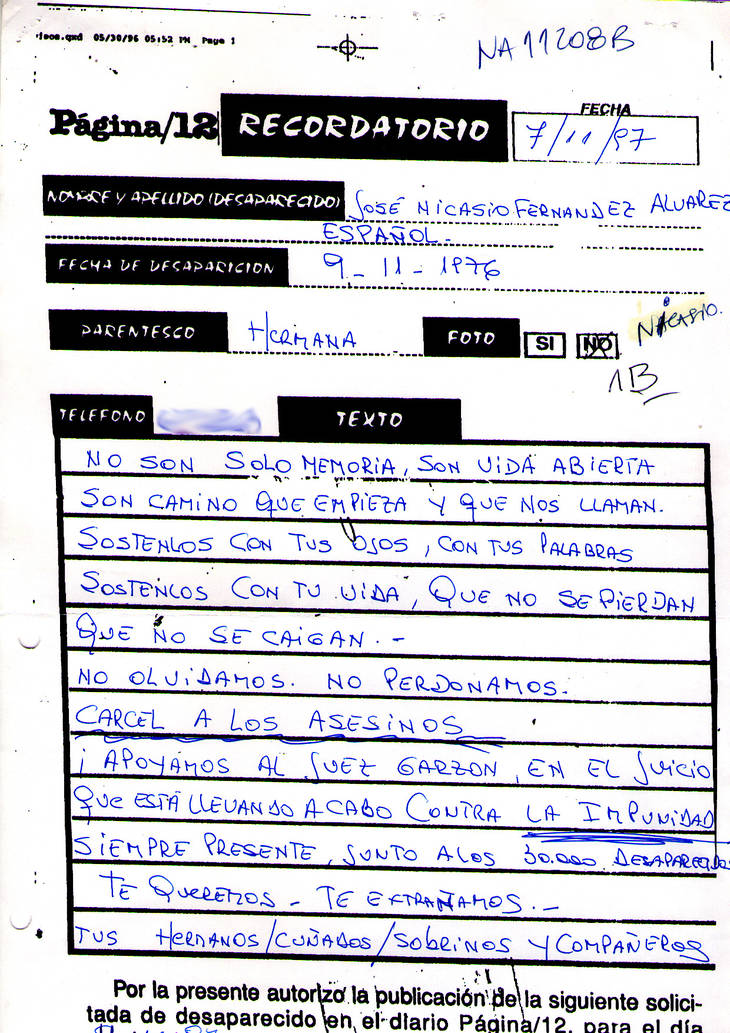 .qxd 05/30/96 05:52 PM Page 1
NA11208B
Página/12 RECORDATORIO
FECHA
7/11/97
NOMBRE Y APELLIDO (DESAPARECIDO) JOSÉ NICASIO FERNANDEZ ALVAREZ
ESPAÑOL.-
FECHA DE DESAPARICION 9-11-1976
PARENTESCO HERMANA FOTO SI NO NICASIO.
1B
TELEFONO TEXTO
NO SON SOLO MEMORIA, SON VIDA ABIERTA
SON CAMINO QUE EMPIEZA Y QUE NOS LLAMAN.
SOSTENLOS CON TUS OJOS, CON TUS PALABRAS
SOSTENLOS CON TU VIDA, QUE NO SE PIERDAN
QUE NO SE CAIGAN.-
NO OLVIDAMOS. NO PERDONAMOS.
CARCEL A LOS ASESINOS
¡APOYAMOS AL JUEZ GARZON, EN EL JUICIO
QUE ESTÁ LLEVANDO A CABO CONTRA LA IMPUNIDAD
SIEMPRE PRESENTE, JUNTO A LOS 30.000 DESAPARECIDOS
TE QUEREMOS - TE EXTRAÑAMOS.-
TUS HERMANOS/CUÑADOS/SOBRINOS Y COMPAÑEROS
Por la presente autorizo la publicación de la siguiente solici-
tada de desaparecido en el diario Página/12, para el día